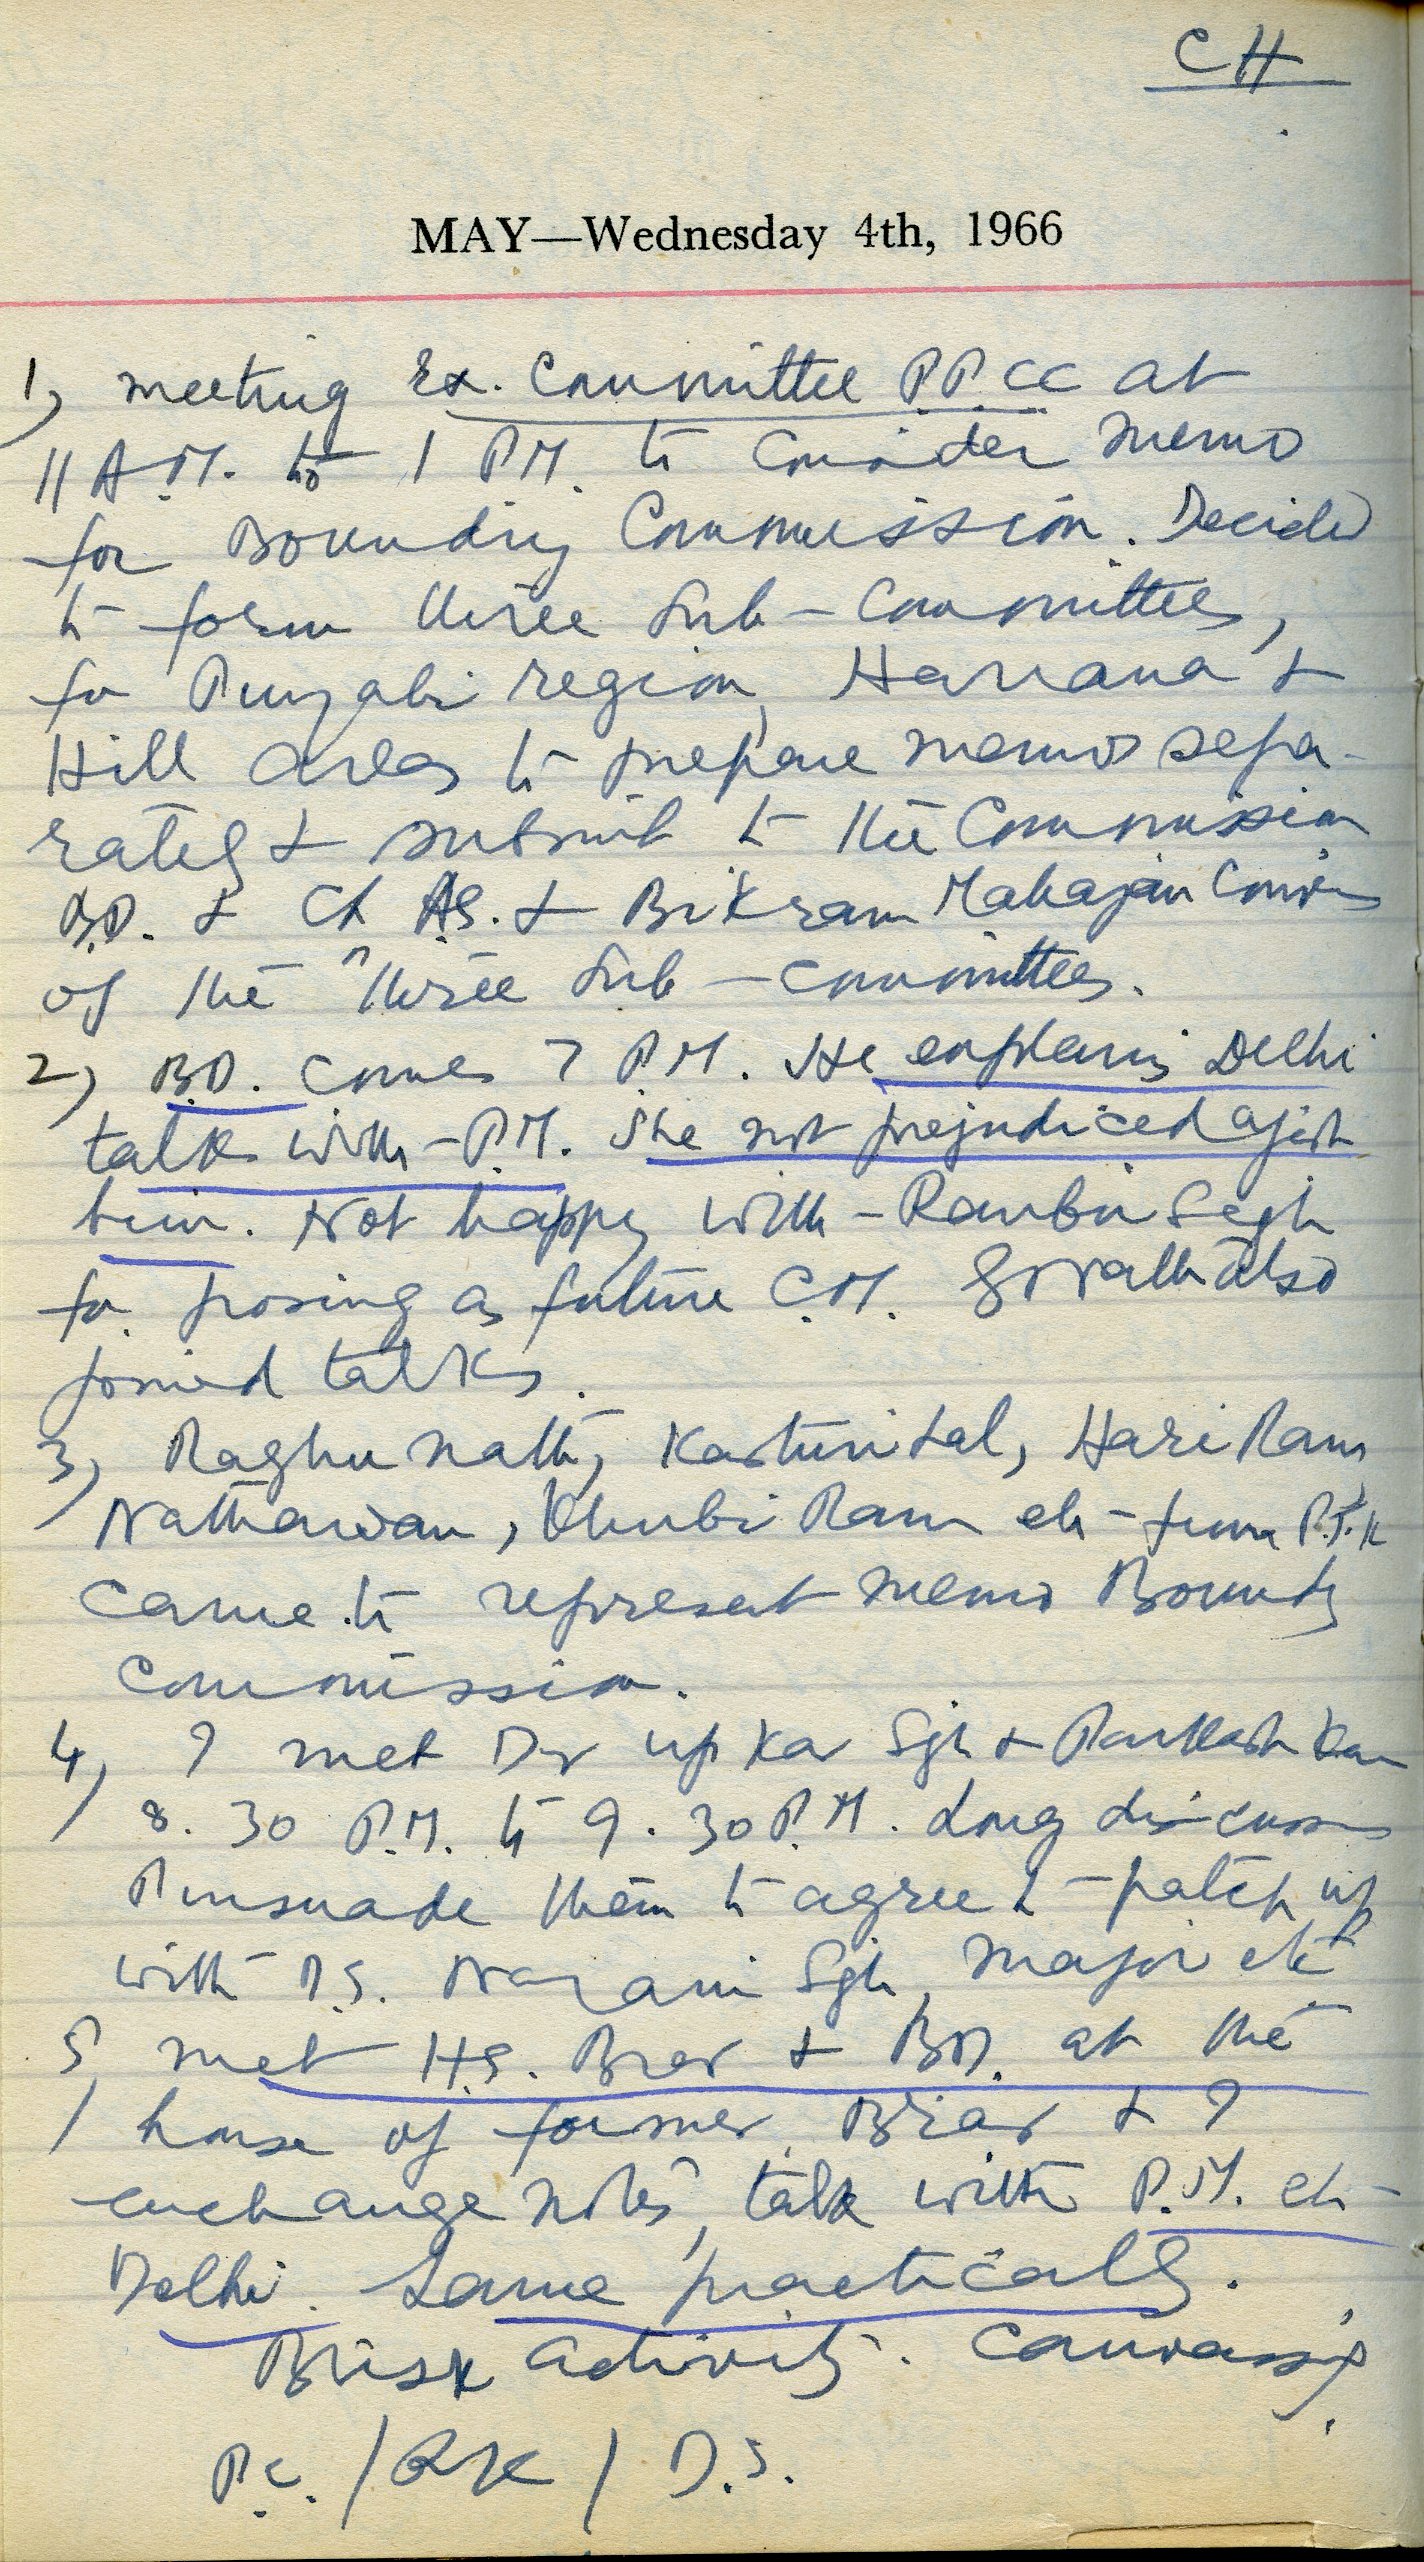 CH
MAY—Wednesday 4th, 1966
1) meeting Ex. Committee P.P.CC at
11 A.M. to 1 P.M. to consider memo
for Boundry Commission. Decided
to form three Sub-Committees,
for Punjabi region, Haryana &
Hill areas to prepare memo sepa-
rately & submit to the Commission
B.D. & Ch &  Bikram Mahajan
of the three Sub-committees.
2) B.D. comes 7 P.M. He explains Delhi
talk with P.M. She not prejudiced agist
him. Not happy with Ranbir Segh
for posing as future C.M. also
joined talks.
3) Raghu nath, Kasturi Lal, Hari Ram
Nathawan, Khubi Ram etc from
came to represent memo Boundy
Commission.
4) I met Dr up Kar Sgh & Parkash Kaur
8.30 P.M. to 9.30 P.M. Long
Pursuade them to agree to patch up
with Narain Sgh, major etc
5) met H.S. Brar & B.D. at the
house of former. Brar & I
exchange notes, talk with P.M. etc
Delhi. Same practically.
Brisk activity. Canvassing
P.C. / RK / D.S.